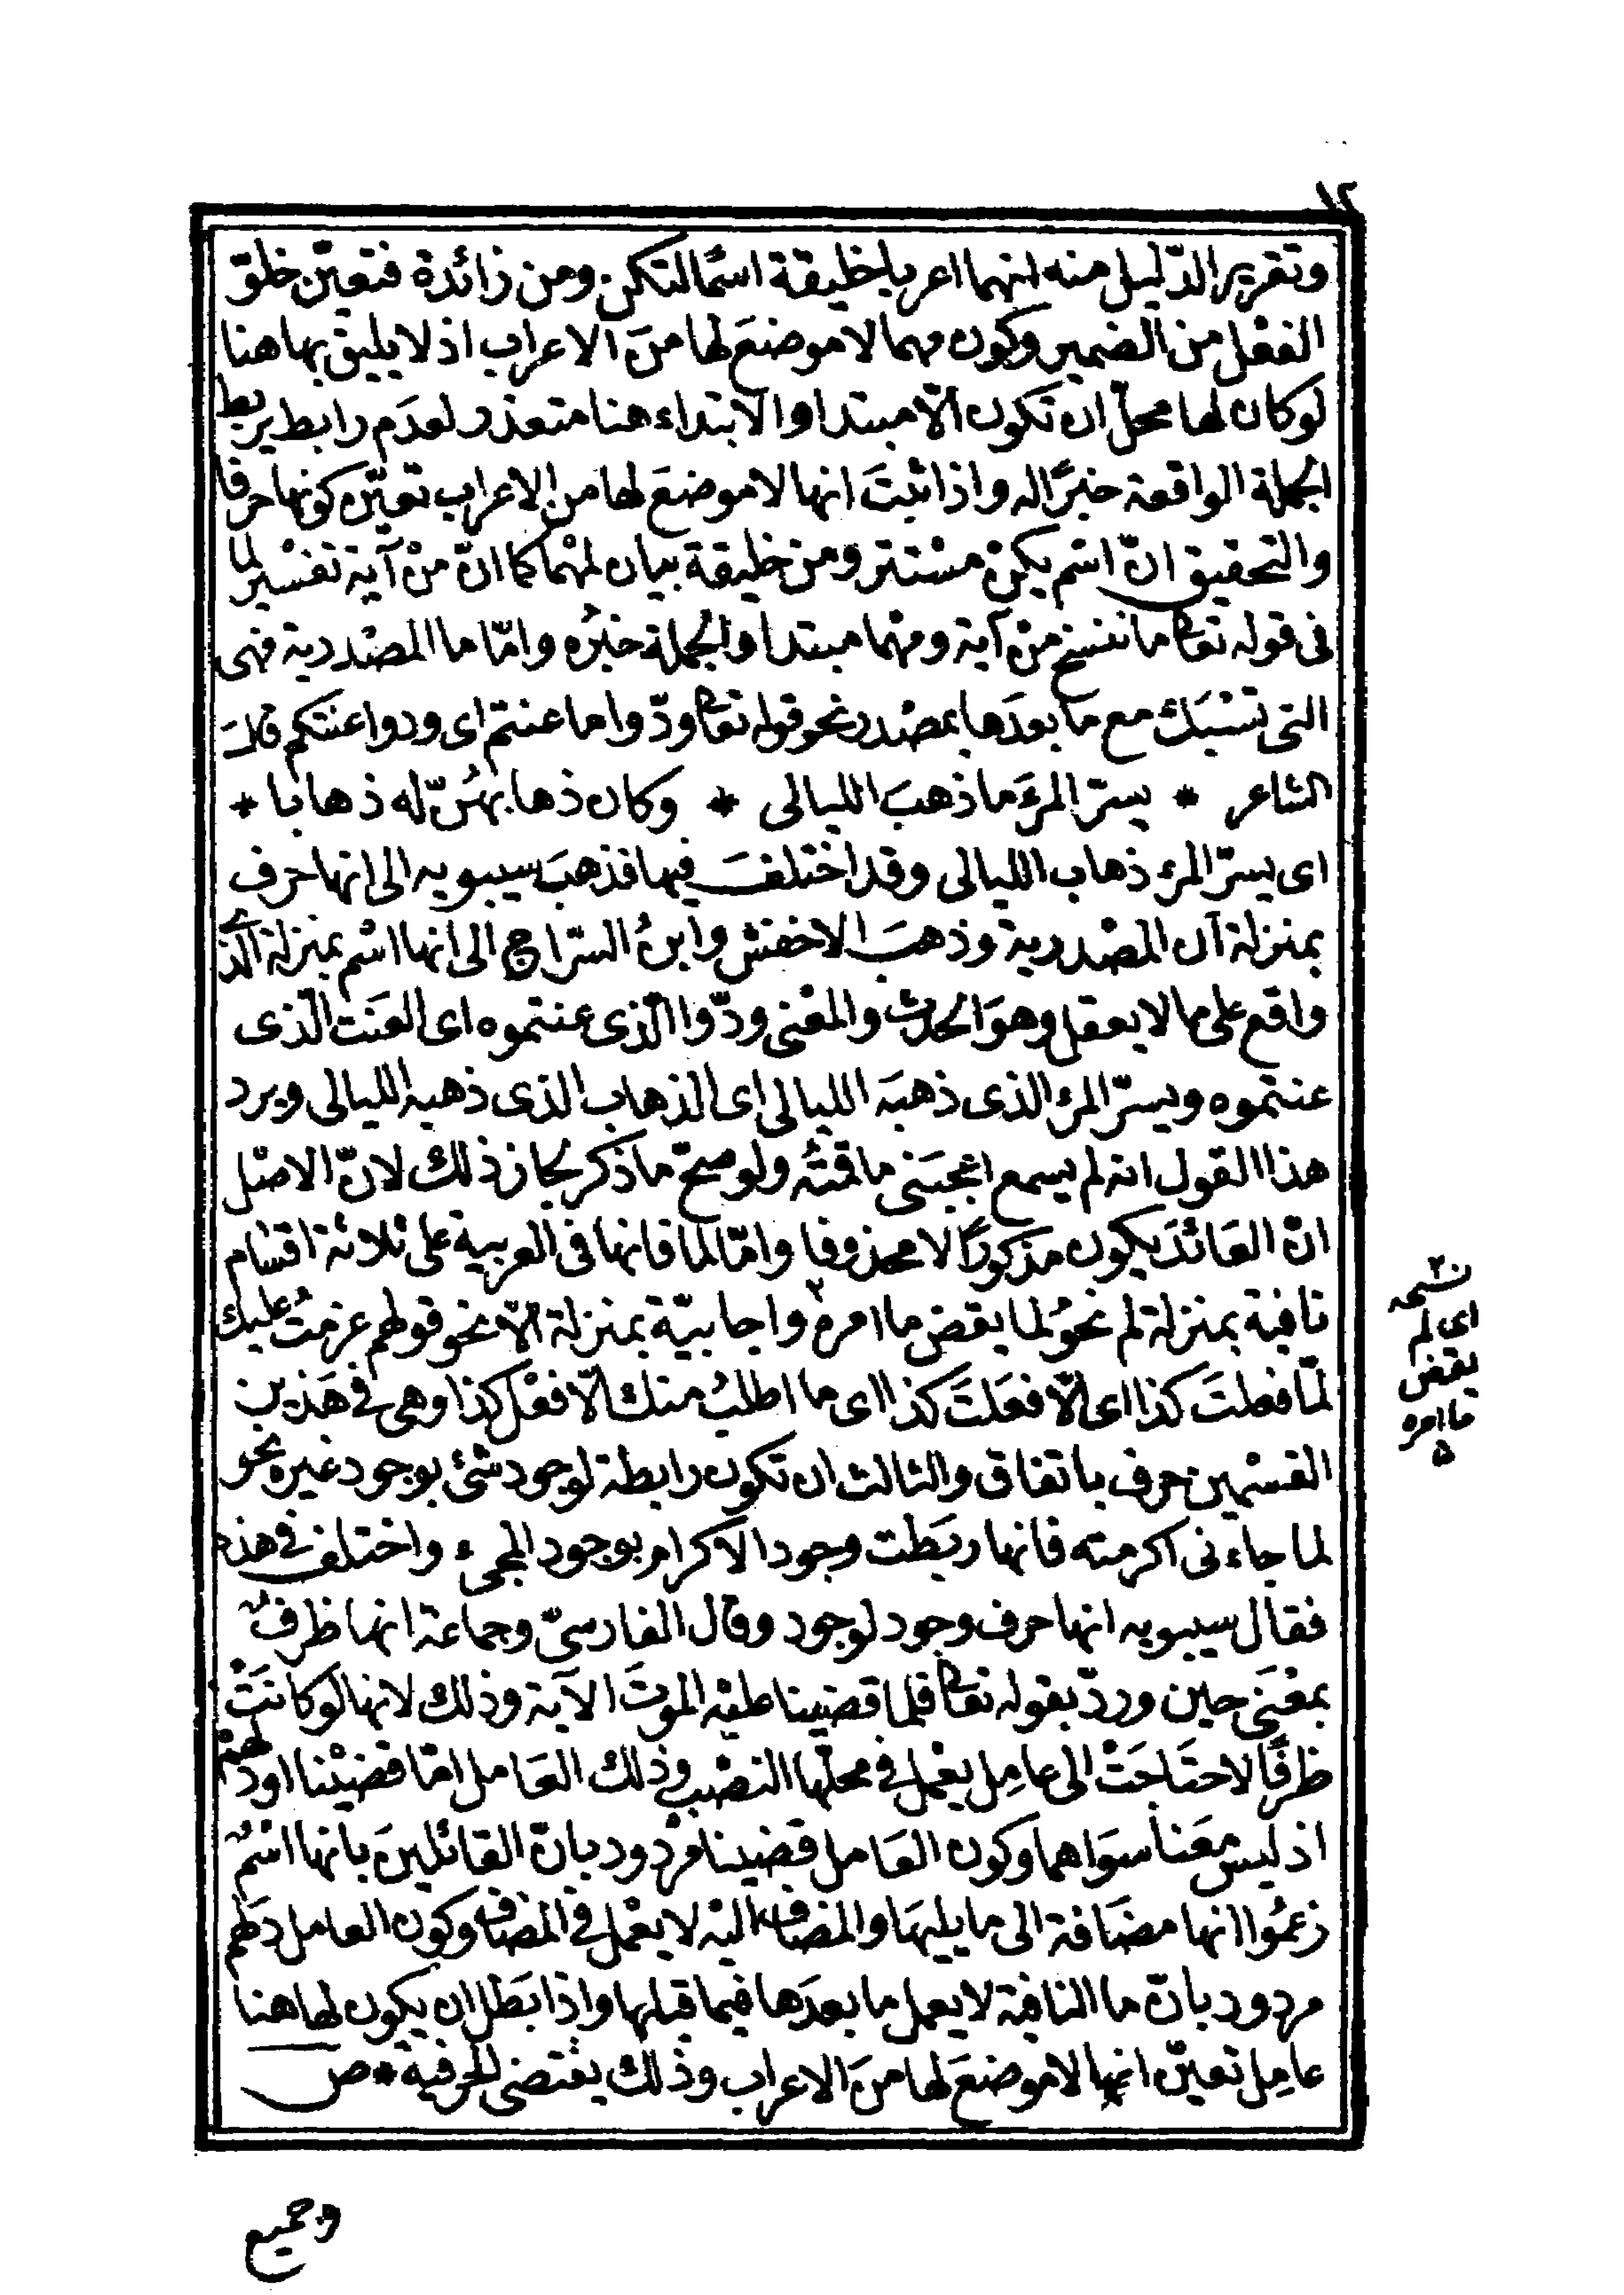 ١٢
وتقرير الدّليل منه انهما اعربا خليقة اسمًا لتكن ومن زائدة فتعيّن خلوّ
الفعْل من الضمير وكون مهما لا موضعَ لها منَ الاعراب اذ لا يليق بها هنا
لو كان لها محلّ ان تكون الّا مبتدا والابتداء هنا متعذر لعدَم رابط يربط
الجملة الواقعة خبرًا له واذا ثبتَ انها لا موضعَ لها من الاعراب تعيّن كونها حرفا
والتحقيق انّ اسْم يكنْ مسْتتر ومن خليقة بيان لمهْما كما انّ منْ آية تفسْير لما
فى قوله تعا ما ننسخ منْ آية ومهما مبتدا والجملة خبرُه وامّا ما المصْدرية فهى
التى تسْبَك مع مَا بعدَها بمصْدر نحو قوله تعا ودّوا ما عنتم اى ودوا عنتكم قال
الشاعر * يسرّ المرءَ ما ذهبَ الليالى * وكان ذهابهُنّ له ذهابا *
اى يسرّ المرء ذهاب الليالى وقد اختلفَ فيها فذهبَ سيبويه الى انها حرف
بمنزلة أن المصْدرية وذهبَ الاخفش وابنُ السّراج الى انها اسْم بمنزلة الّذى
واقع على ما لا يعقل وهوَ الحدث والمعْنى ودّوا الّذى عنتموه اى العَنَت الّذى
عنتموه ويسرّ المرء الذى ذهبَه الليالى اى الذهاب الذى ذهبه الليالى ويرد
هذا القول انه لم يسمع اعْجبَنى ما قمتُه ولو صحّ ما ذكر لجاز ذلك لانّ الاصْل
انّ العَائدَ يكون مذكورًا لا محذوفا وامّا لما فانها فى العربية على ثلاثة اقسَام
نافية بمنزلة لم نحوُ لما يقض ما امره ٢ وايجابيّة بمنزلة الّا نحو قولهم عزمتُ عليك
لمّا فعلتَ كذا اى الّا فعَلتَ كذا اى ما اطلبُ منك الّا فعْل كذا وهى فى هَذين
القسْمين حرف باتفاق والثالث ان تكون رابطة لوجود شئ بوجود غيره نحو
لما جاءنى اكرمته فانها ربَطت وجود الاكرام بوجود المجىء واختلف فى هذه
فقال سيبويه انها حرف وجود لوجود وقال الفارسىّ وجماعة انها ظرفٌ
بمعْنَى حين وردّ بقوله تعا فلما قضينا عليْه الموتَ الآية وذلك لانها لو كانَتْ
ظرفًا لاحتَاجَتْ الى عامِل يعْمل فى محلّها النصْب وذلك العَامل امّا قضيْنا او دلهمْ
اذ ليس معَنا سوَاهما وكون العَامل قضينا مرْدود بانّ القائلينَ بانها اسْمٌ
زعمُوا انها مضَافة الى ما يليهَا والمضاف اليْه لا يعْمل فى المضاف وكون العامل دَلهم
مردود بانّ ما النافية لا يعمل ما بعدَها فيما قبلها واذا بَطل ان يكون لها هنا
عامِل تعيّن انها لا موضعَ لها منَ الاعراب وذلك يقتضى الحرفية * ص
نسخة ٢
اى لم
يقض
ما امره
ه
وجميع